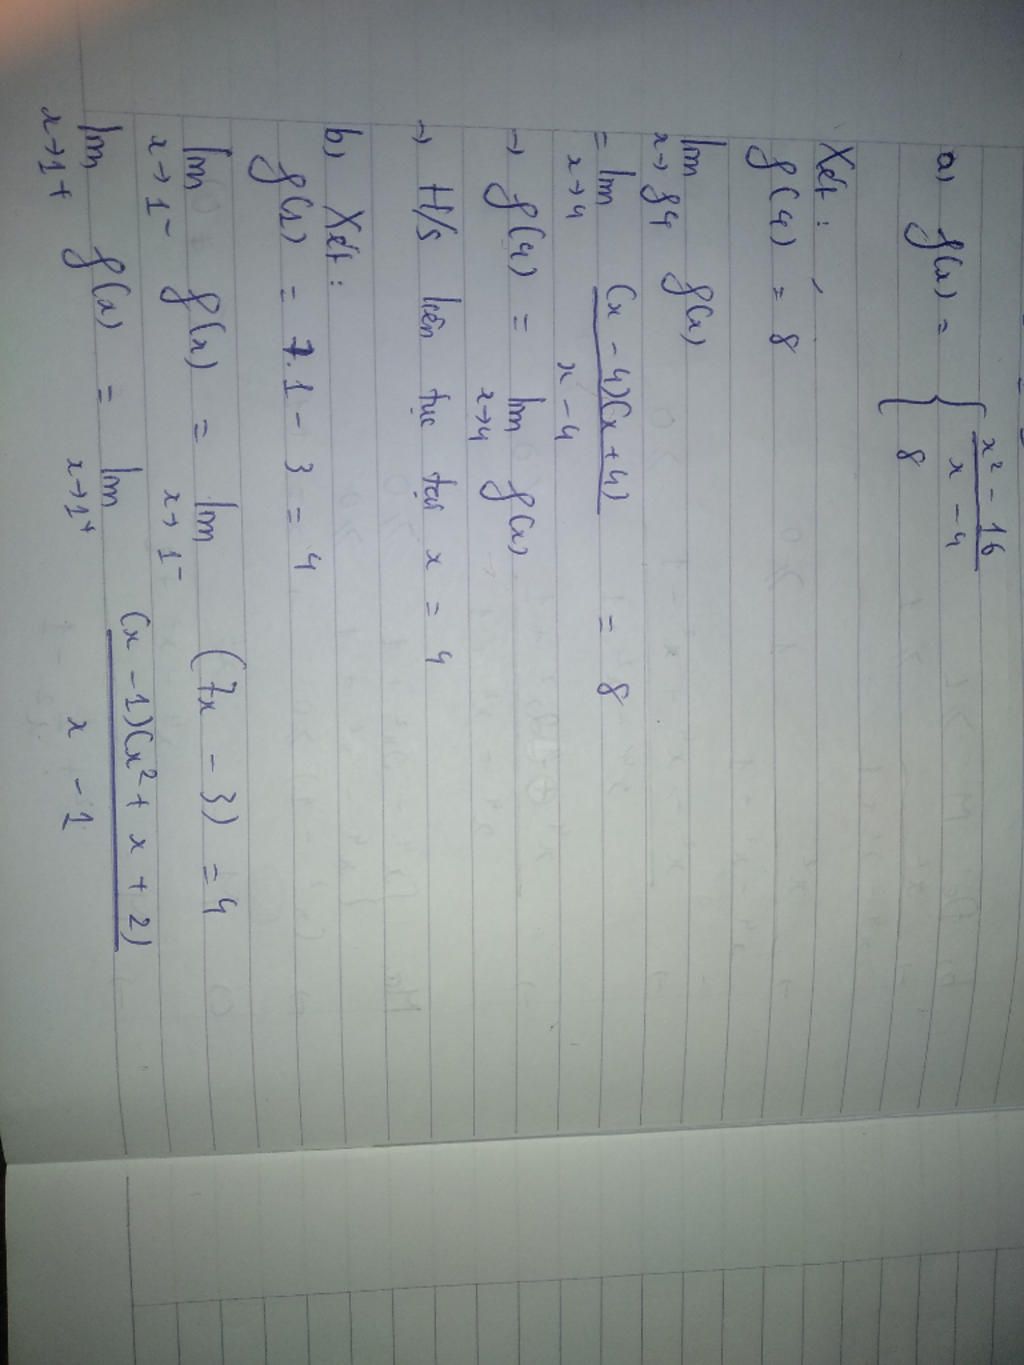 a) f(x) = { x² - 16 / x - 4
{ 8
Xét :
f(4) = 8
lim x→4 f(x)
= lim x→4 (x - 4)(x + 4) / x - 4 = 8
→ f(4) = lim x→4 f(x)
→ H/s liên tục tại x = 4
b) Xét :
f(1) = 7.1 - 3 = 4
lim x→1⁻ f(x) = lim x→1⁻ (7x - 3) = 4
lim x→1⁺ f(x) = lim x→1⁺ (x - 1)(x² + x + 2) / x - 1